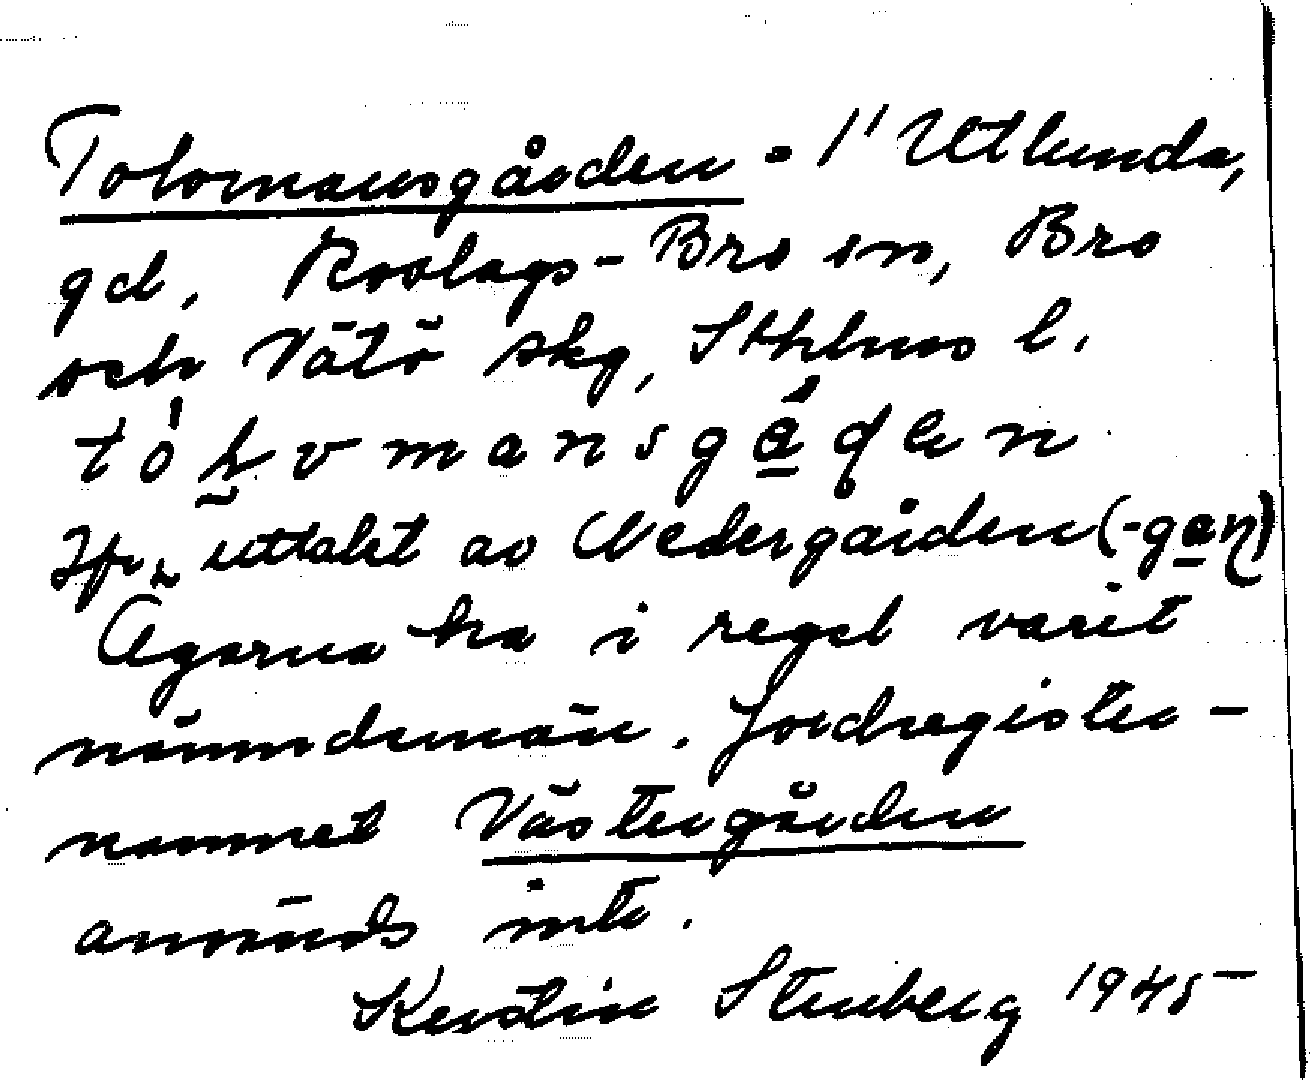 Tolvmansgården = 1¹ Utlunda,
gd, Roslags-Bro sn, Bro
och Vätö skg, Sthlms l.
tòl̬vmansgạ́ɖen
Jfr uttalet av Nedergården (-gaɳ)
Ägarna ha i regel varit
nämndemän. Jordregister-
namnet Västergården
används inte.
Kerstin Stenberg 1945